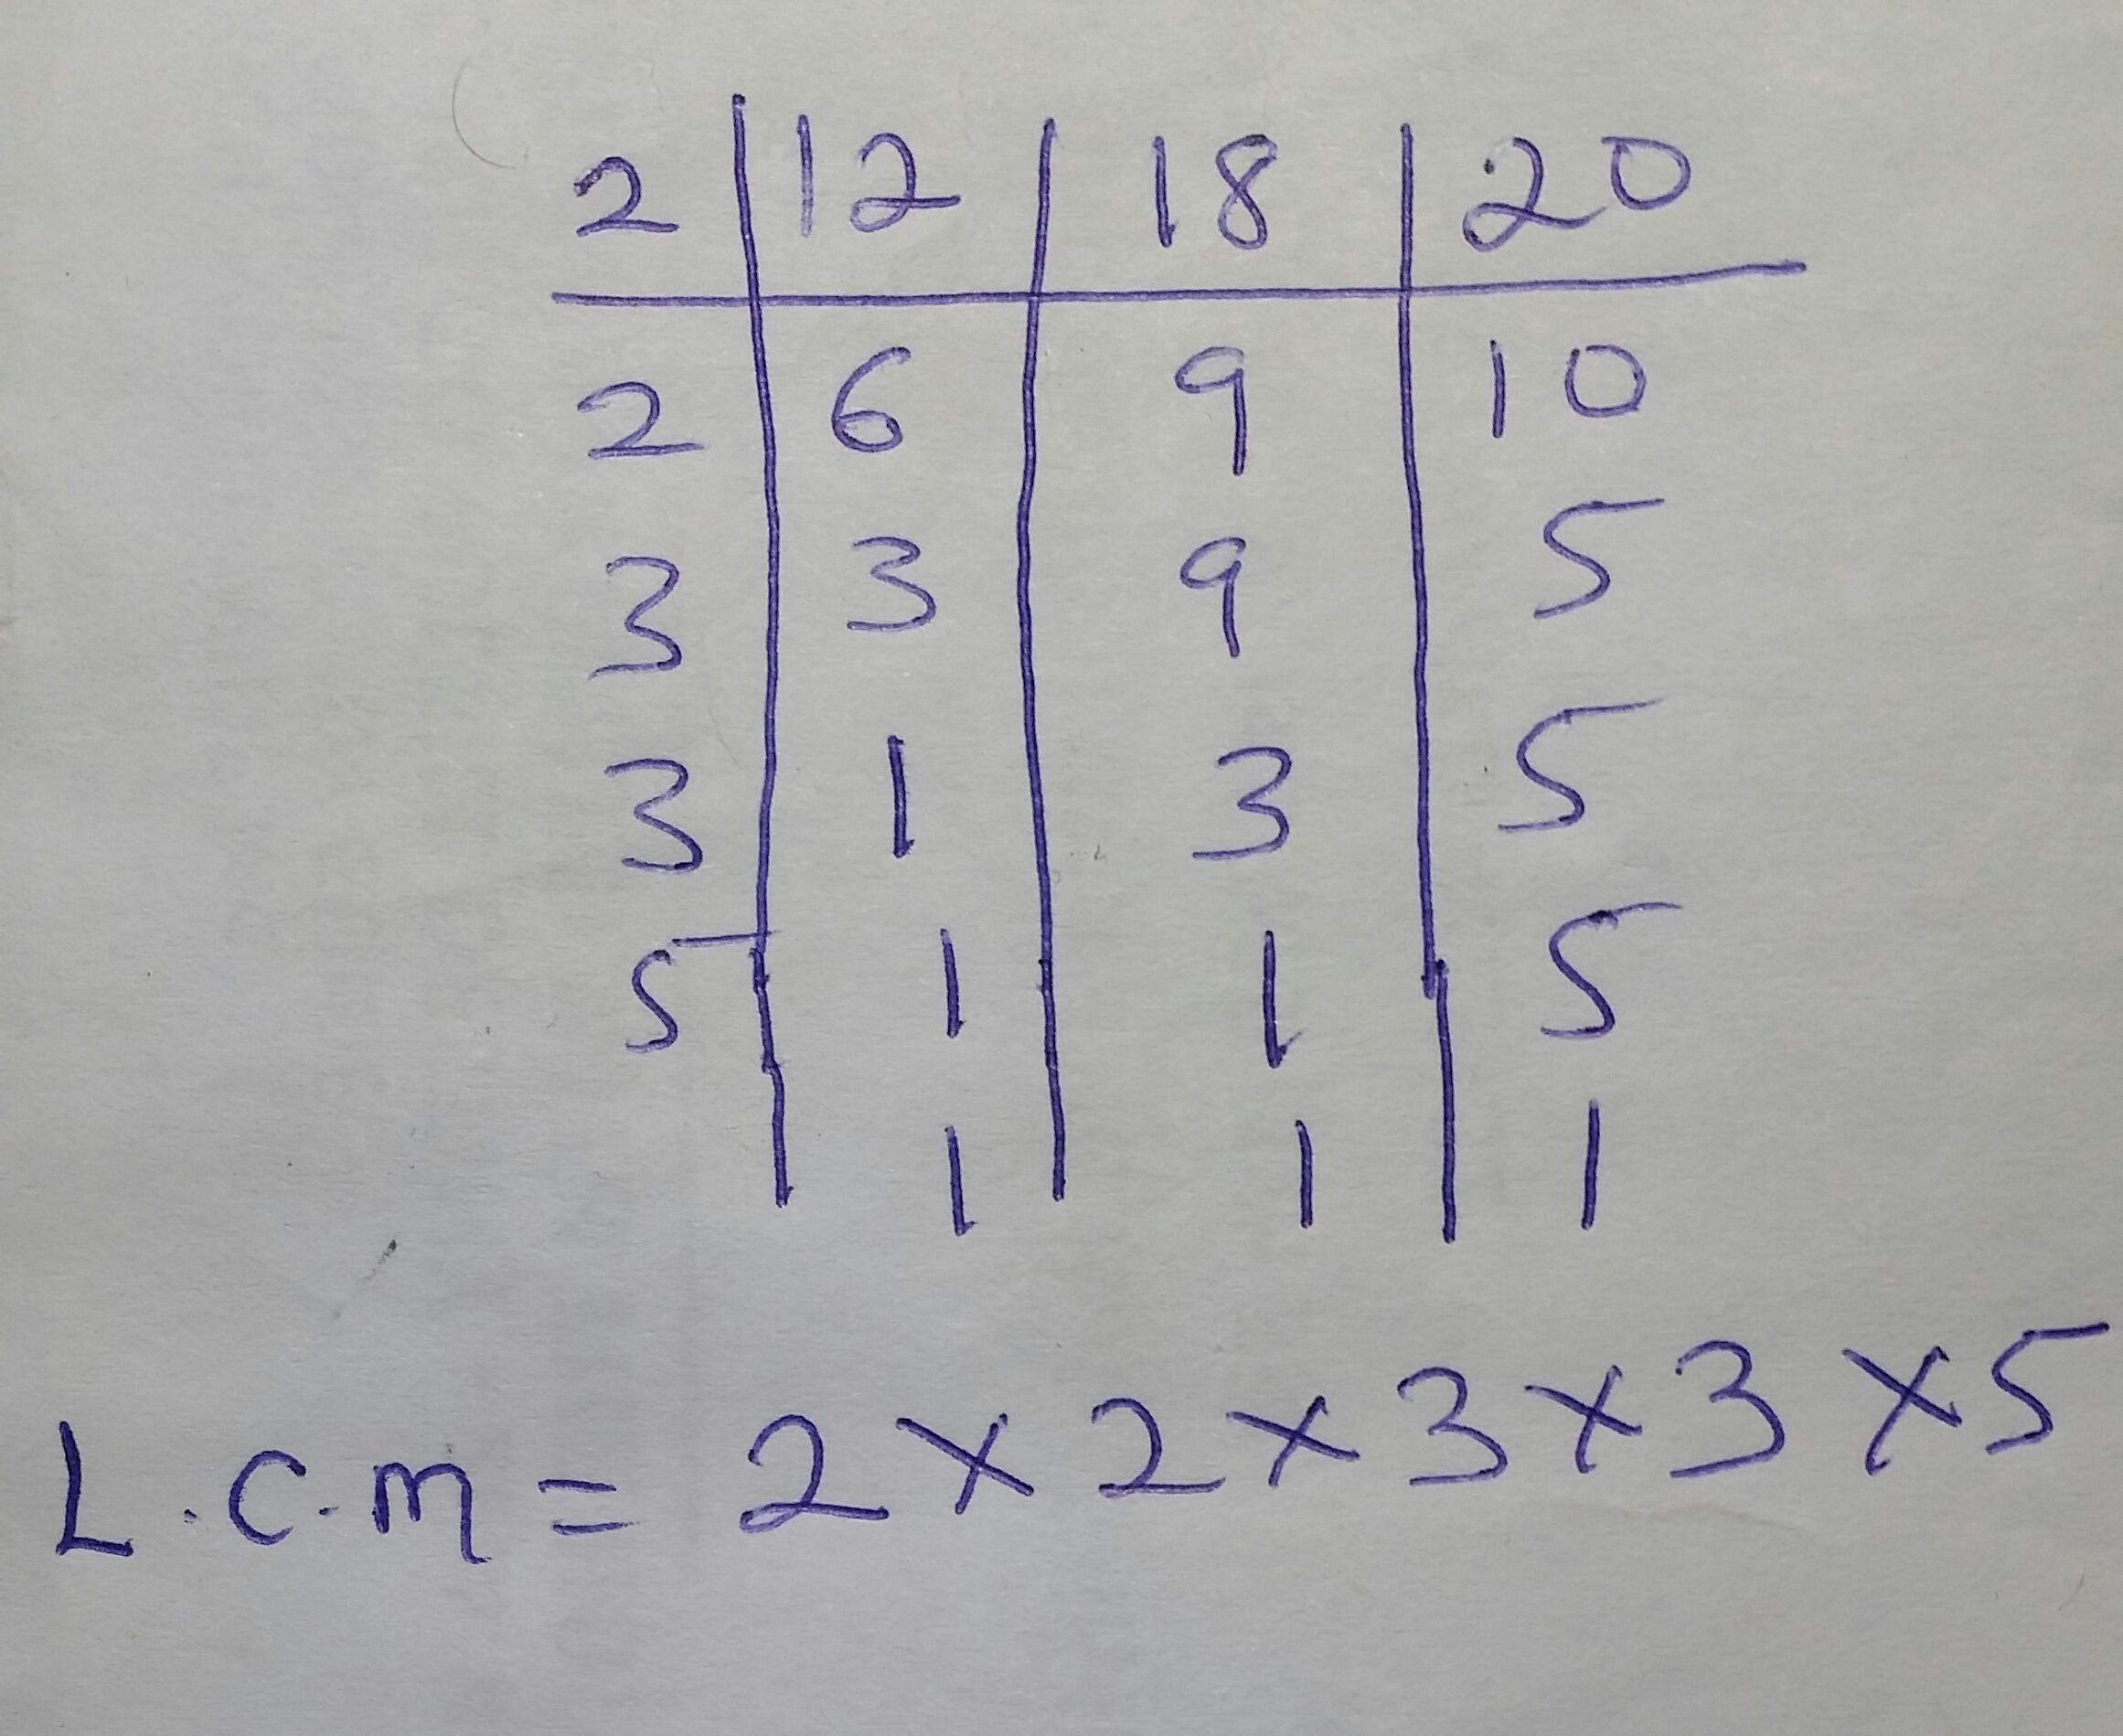 2 12 18 20
2 6 9 10
3 3 9 5
3 1 3 5
5 1 1 5
1 1 1
L.C.M = 2 × 2 × 3 × 3 × 5